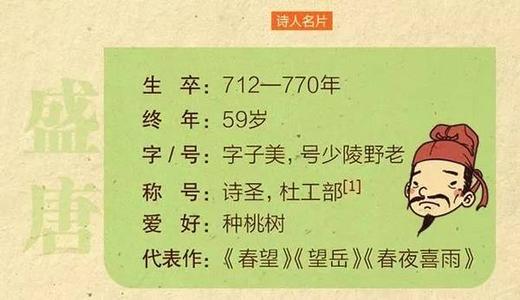 诗人名片
盛唐
生 卒：712—770年
终 年：59岁
字/号：字子美，号少陵野老
称 号：诗圣，杜工部[1]
爱 好：种桃树
代表作：《春望》《望岳》《春夜喜雨》